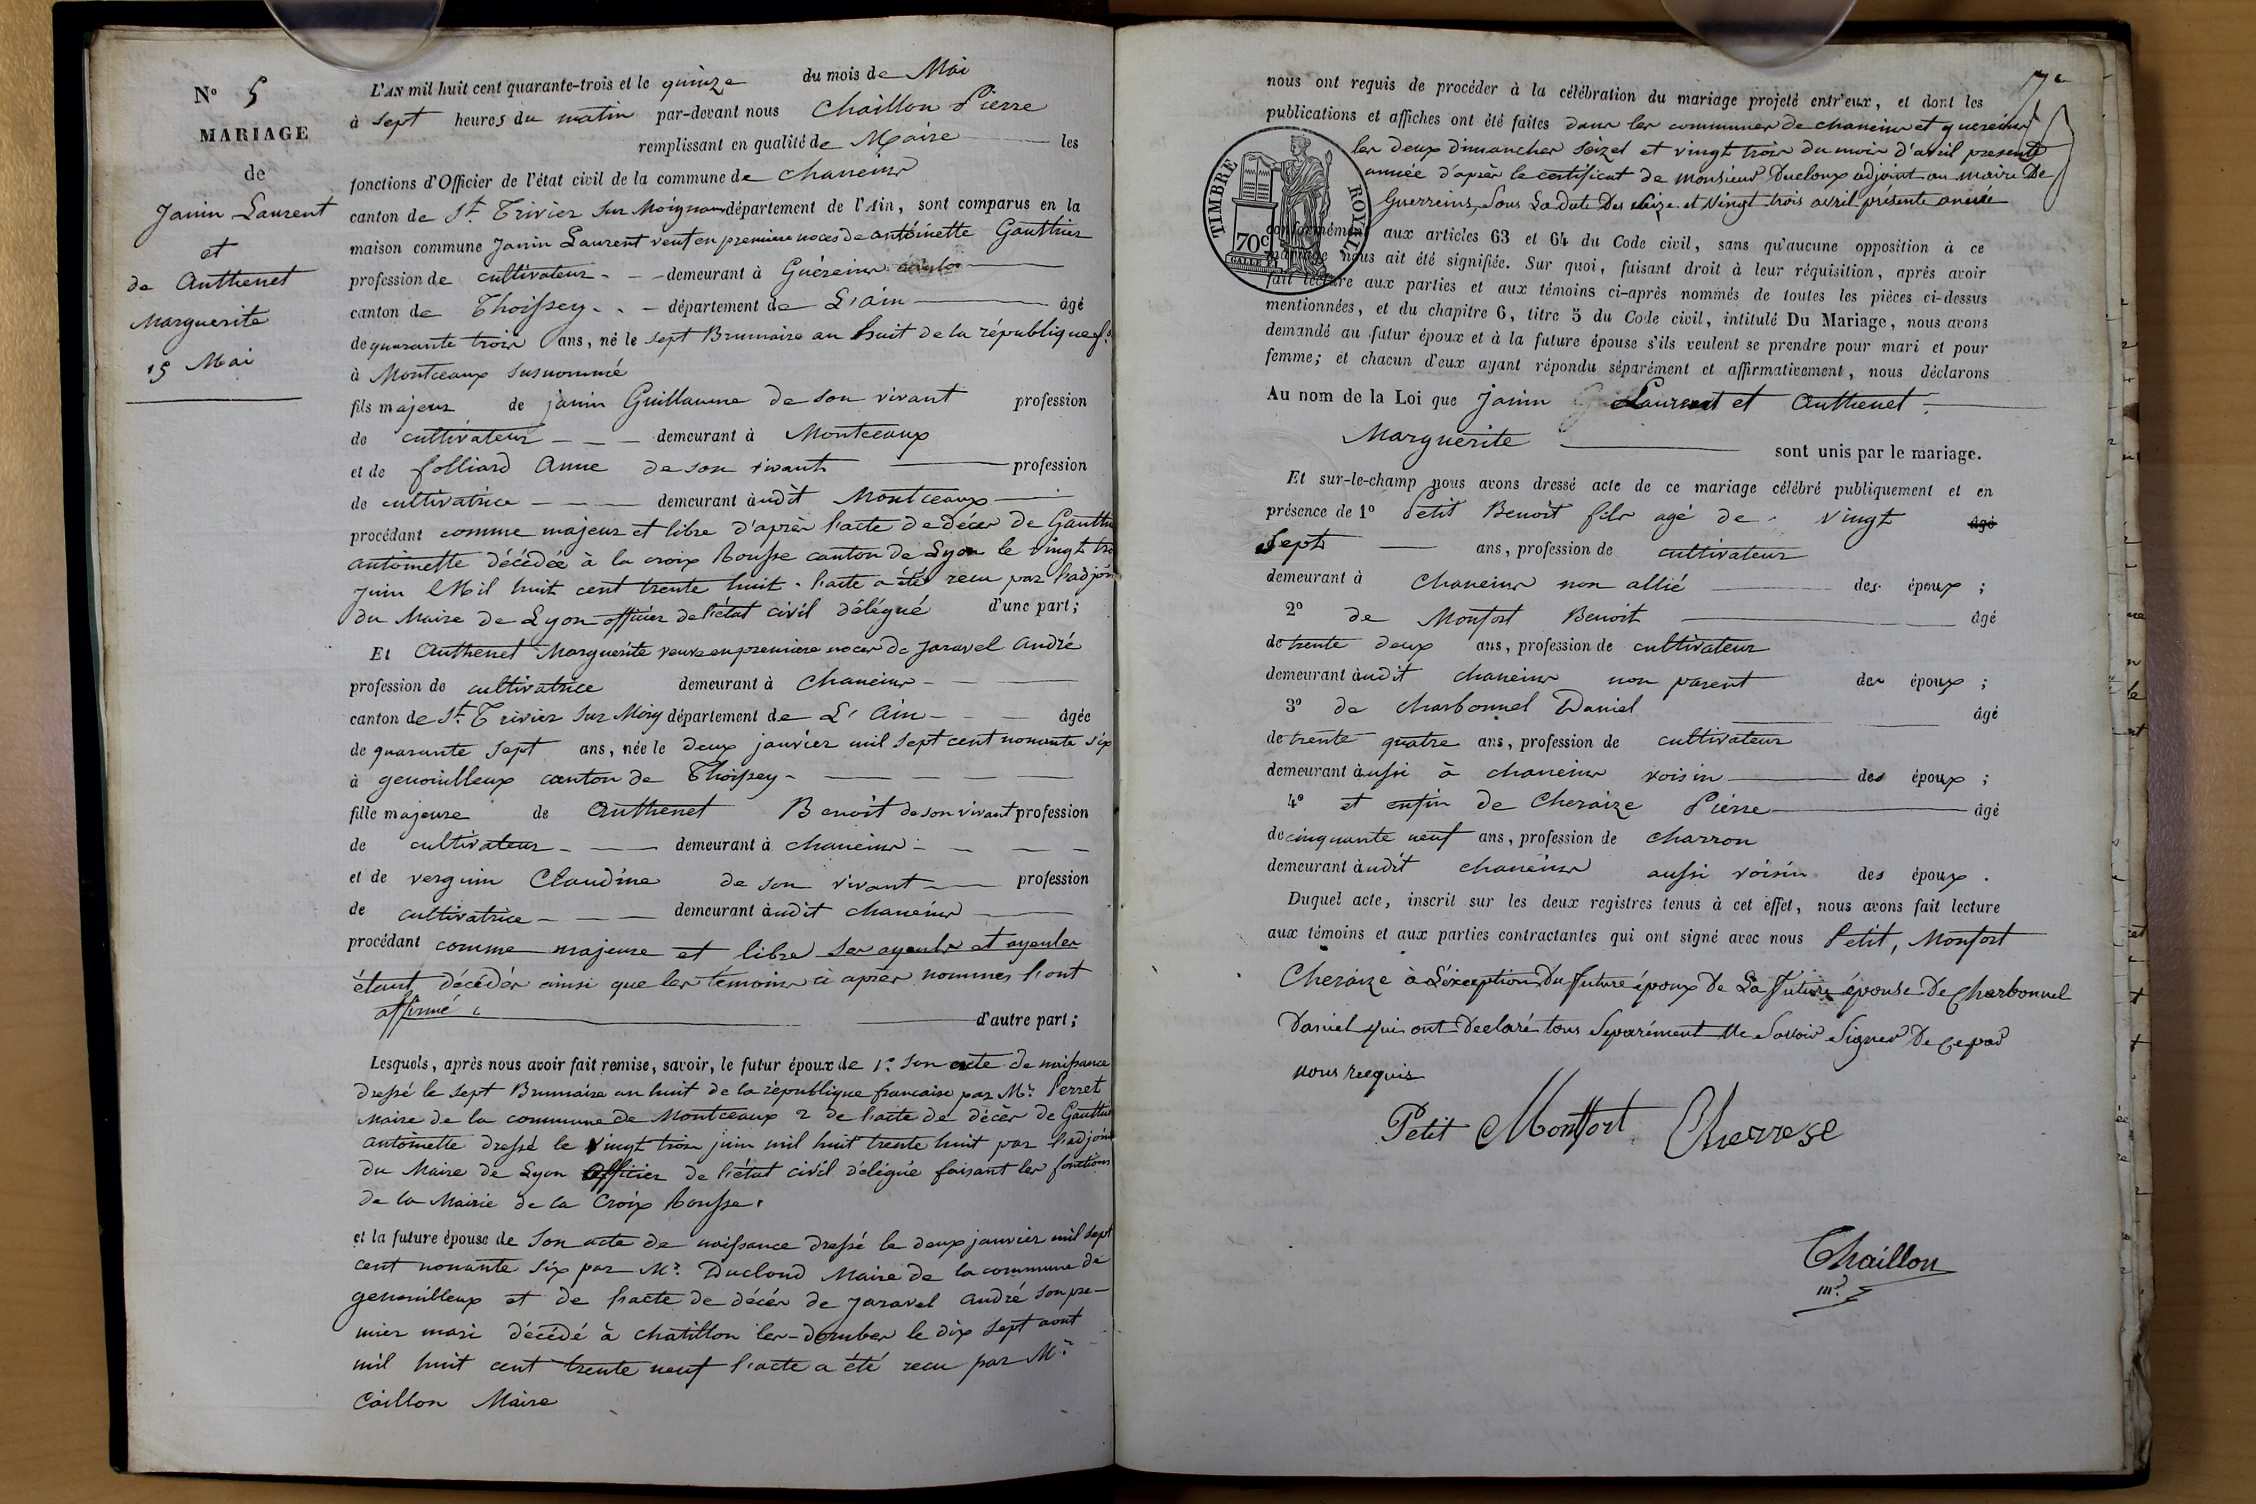 N° 5
MARIAGE
de
Janin Laurent
et
de Authenet
Marguerite
15 Mai
L'AN mil huit cent quarante-trois et le quinze du mois de Mai
à sept heures du matin par-devant nous Chaillon Pierre
remplissant en qualité de Maire les
fonctions d'Officier de l'état civil de la commune de chaneins
canton de St. Trivier sur Moignans département de l'Ain, sont comparus en la
maison commune Janin Laurent veuf en premiere noces de antoinette Gauthier
profession de cultivateur - - demeurant à Guéreins
canton de Thoissey - - département de L'ain âgé
de quarante trois ans, né le sept Brumaire an huit de la république f.se
à Montceaux susnommé
fils majeur de janin Guillaume de son vivant profession
de cultivateur - - - demeurant à Montceaux
et de folliard Anne de son vivant profession
de cultivatrice - - - demeurant àudit Montceaux
procédant comme majeur et libre d'après l'acte de décès de Gauthie
antoinette décédée à la croix Rousse canton de Lyon le vingt tro
juin Mil huit cent trente huit. l'acte a été recu par l'adjoin
du Maire de Lyon officier de l'état civil délégué d'une part;
Et Authenet Marguerite veuve en premiere noces de Jaravel André
profession de cultivatrice demeurant à Chaneins - - -
canton de St. Trivier sur Moig département de L'Ain - - - âgée
de quarante sept ans, née le deux janvier mil sept cent nonante six
à genouilleux canton de Thoissey -
fille majeure de Authenet Benoit de son vivant profession
de cultivateur - - - demeurant à chaneins - - - -
et de verguin Claudine de son vivant profession
de cultivatrice - - - demeurant àudit chaneins
procédant comme majeure et libre ses ayeuls et ayeules
étant décédés ainsi que les temoins ci après nommes l'ont
affirmé. d'autre part;
Lesquels, après nous avoir fait remise, savoir, le futur époux de 1° son acte de naissance
dressé le sept Brumaire an huit de la république francaise par Mr. Perret
Maire de la commune de Montceaux 2 de l'acte de décès de Gauthie
antoinette dressé le vingt trois juin mil huit trente huit par l'adjoin
du Maire de Lyon Officier de l'état civil délégué faisant les fonctions
de la Mairie de la Croix Rousse.
et la future épouse de son acte de naissance dressé le deux janvier mil sept
cent nonante six par Mr. Ducloud Maire de la commune de
genouilleux et de l'acte de décés de Jaravel André son pre-
mier mari décédé à chatillon les-dombes le dix sept aout
mil huit cent trente neuf l'acte a été recu par Mr.
Caillon Maire
nous ont requis de procéder à la célébration du mariage projeté entr'eux, et dont les
publications et affiches ont été faites dans les communes de chaneins et guereins
les deux dimanches seize et vingt trois du mois d'avril presente
année d'après le certificat de monsieur Ducloux adjoint au maire De
Guerreins, Sous La date Des seize et vingt trois avril présente année
TIMBRE ROYAL
70c
conformément aux articles 63 et 64 du Code civil, sans qu'aucune opposition à ce
mariage nous ait été signifiée. Sur quoi, faisant droit à leur réquisition, après avoir
fait lecture aux parties et aux témoins ci-après nommés de toutes les pièces ci-dessus
mentionnées, et du chapitre 6, titre 5 du Code civil, intitulé Du Mariage, nous avons
demandé au futur époux et à la future épouse s'ils veulent se prendre pour mari et pour
femme; et chacun d'eux ayant répondu séparément et affirmativement, nous déclarons
Au nom de la Loi que Janin Laurent et Authenet
Marguerite sont unis par le mariage.
Et sur-le-champ nous avons dressé acte de ce mariage célébré publiquement et en
présence de 1° Petit Benoit fils agé de vingt âgé
sept ans, profession de cultivateur
demeurant à chaneins non allié des époux;
2° de Monfort Benoit âgé
de trente deux ans, profession de cultivateur
demeurant àudit chaneins non parent des époux;
3° de Charbonnel Daniel âgé
de trente quatre ans, profession de cultivateur
demeurant àussi à chaneins voisin des époux;
4° et enfin de Cheraize Pierre âgé
de cinquante neuf ans, profession de charron
demeurant àudit chaneins aussi voisin des époux.
Duquel acte, inscrit sur les deux registres tenus à cet effet, nous avons fait lecture
aux témoins et aux parties contractantes qui ont signé avec nous Petit, Monfort
Cheraize à L'éxeption Du future époux De La future épouse De Charbonnel
Daniel qui ont Declaré tous Séparément Ne Savoir Signer De Ce par
nous requis
Petit Montfort Cherrese
Chaillon
m.e